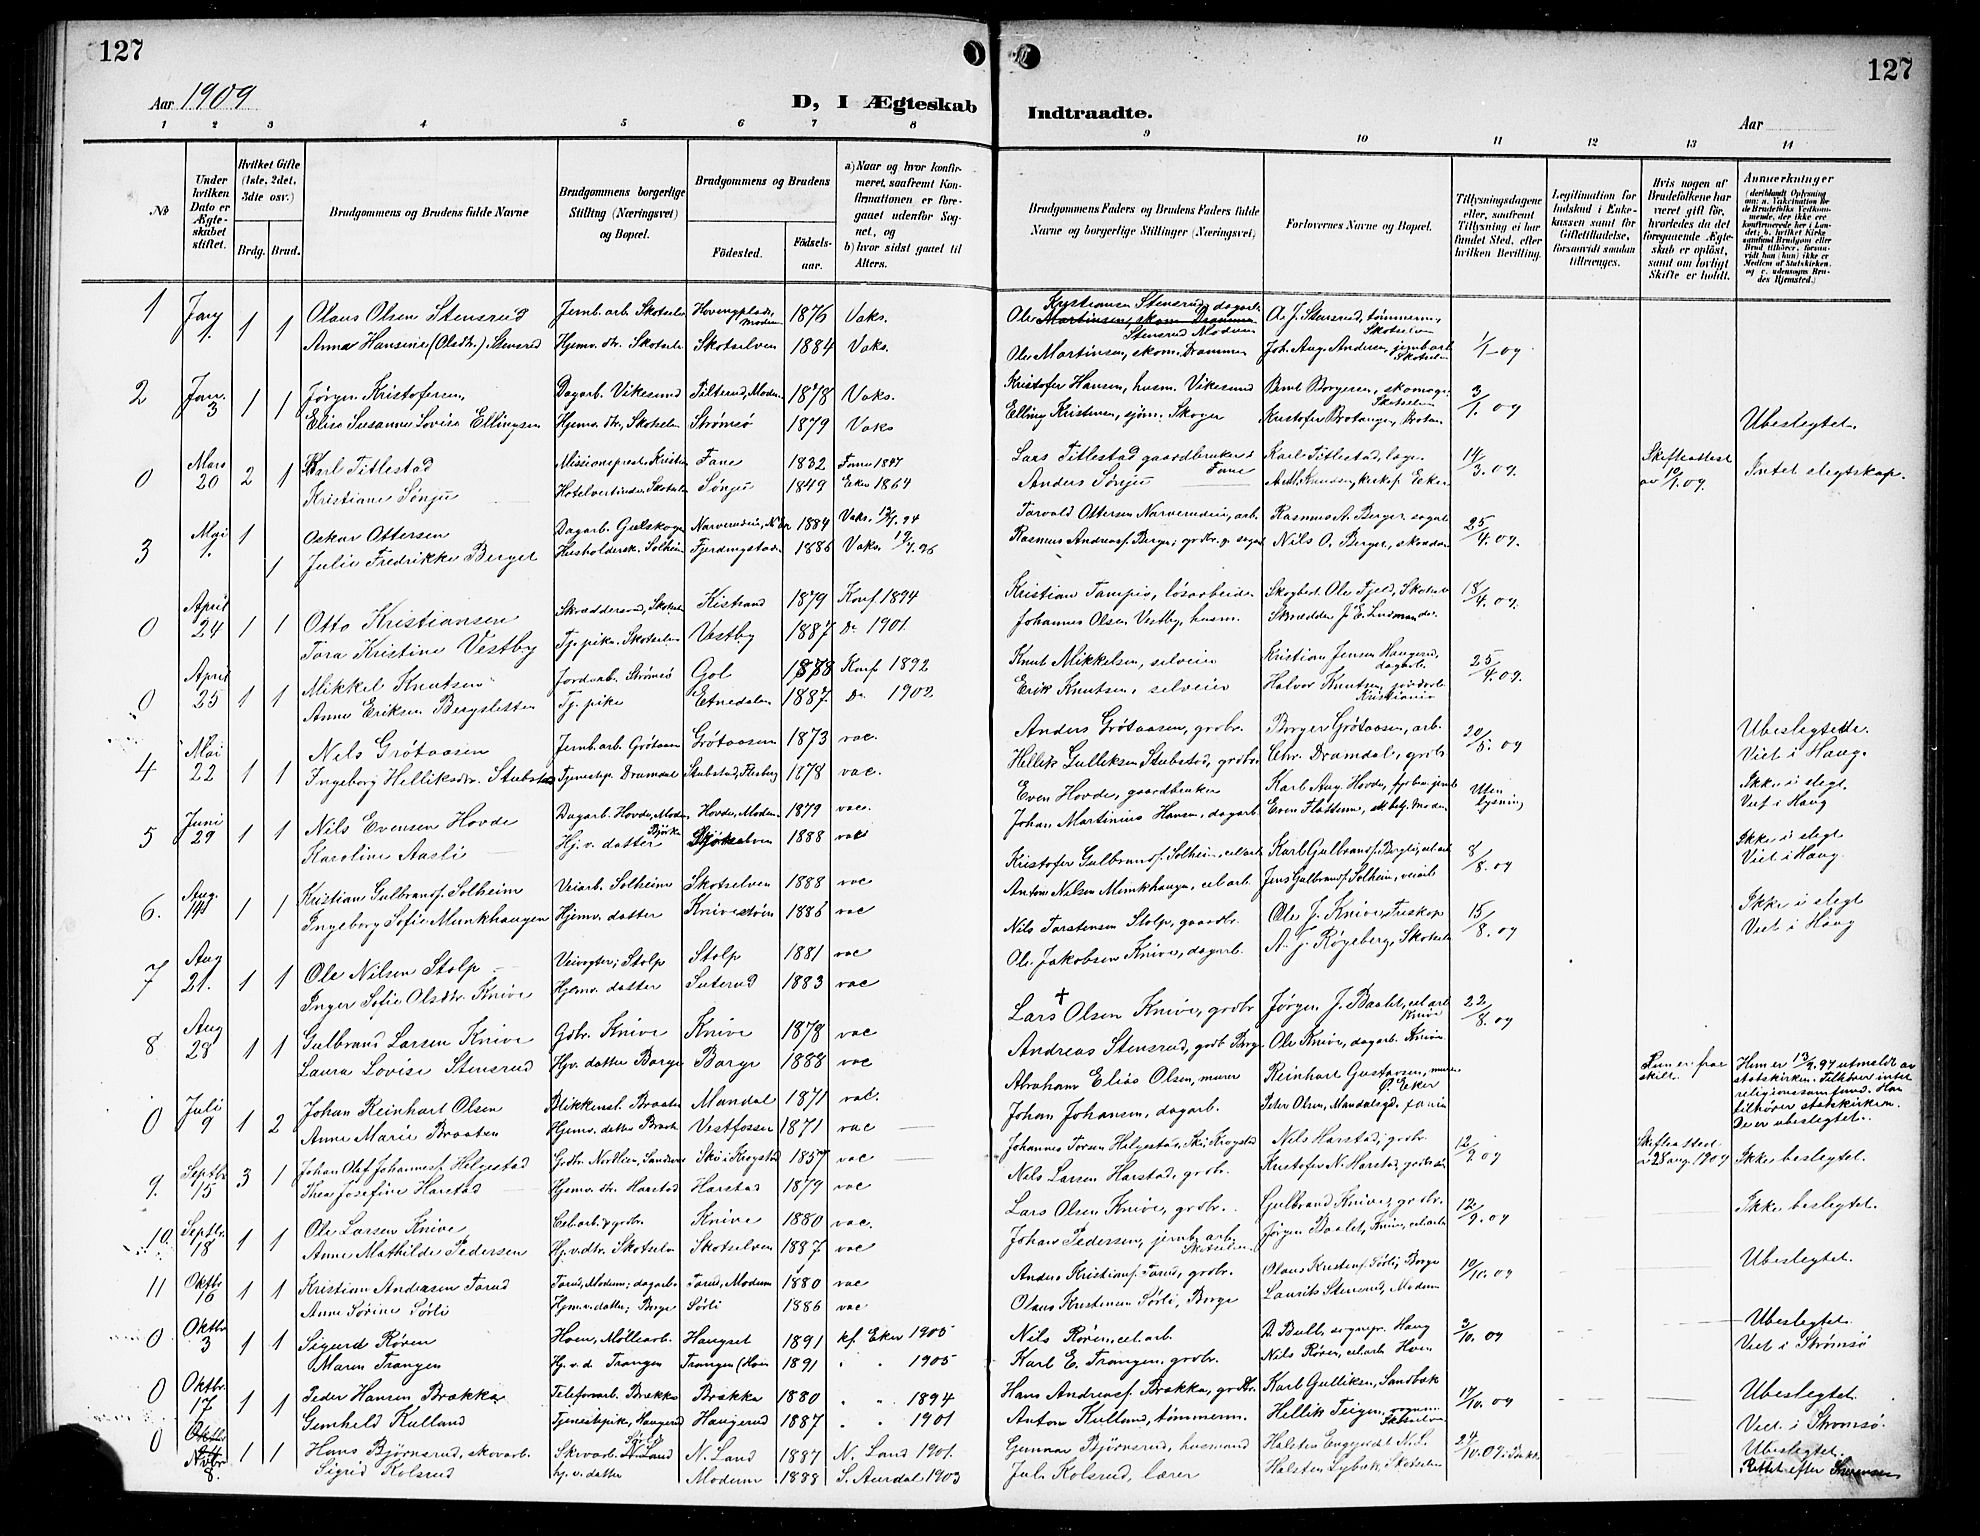 127
127
Aar 1909
D, I Ægteskab
Indtraadte.
Aar
1 2 3 4 5 6 7 8 9 10 11 12 13 14
№
Under hvilken Dato er Ægteskabet stiftet.
Hvilket Gifte (1ste, 2det, 3dte osv.)
Brdg. Brud.
Brudgommens og Brudens fulde Navne
Brudgommens borgerlige Stilling (Næringsvei) og Bopæl.
Brudgommens og Brudens
Födested.
Födsels-aar.
a) Naar og hvor konfirmeret, saafremt Konfirmationen er foregaaet udenfor Sognet, og
b) hvor sidst gaaet til Alters.
Brudgommens Faders og Brudens Faders fulde Navne og borgerlige Stillinger (Næringsvei)
Forlovernes Navne og Bopæl.
Tillysningsdagene eller, saafremt Tillysning ei har fundet Sted, efter hvilken Bevilling.
Legitimation for Indskud i Enkekassen samt for Giftetilladelse, forsaavidt saadan tiltrænges.
Hvis nogen af Brudefolkene har været gift før, hvorledes da det foregaaende Ægteskab er oplöst, samt om lovligt Skifte er holdt.
Anmærkninger
(deriblandt Oplysning om: a. Vakcination for de Brudefolks Vedkommende, der ikke ere konfirmerede her i Landet; b. hvilket Kirkesamfund Brudgom eller Brud tilhörer, forsaavidt han (hun) ikke er Medlem af Statskirken, og c. udensogns Brudes Hjemsted.)
1 Jany 1. 1 1 Olaus Olsen Stensrud Jernb. arb. Skotselv Hovengplads, Modum 1876 Vaks. Ole Kristiansen Stensrud, dagarb. Stensrud Modum A. J. Stensrud, tømmerm., Skotselven
Anna Hansine (Olsdtr.) Stensrud Hjemv. dtr. Skotselv Skotselven 1884 Vaks. Ole Martinsen, skom. Drammen Joh. Aug. Andersen, jernb. arb. Skotselven 1/1-09
2 Jan. 3 1 1 Jørgen Kristofersen, Dagarb. Vikesund Tilterud, Modum 1878 Vaks. Kristofer Hansen, husm. Vikesund Bernt Borgersen, skomager Skotselven 3/1.09
Elise Susanne Lovise Ellingsen Hjemv. dtr., Skotselv Strømsø 1879 Vaks Elling Kristensen, sjøm. Skoger Kristofer Brotangen, Brotan Ubeslegtet.
0 Mars 20 2 1 Karl Titlestad Missionsprest, Kristia Fane 1832 Fane 1847 Lars Titlestad gaardbruker i Fane Karl Titlestad, læge 14/3.09. Skifteattest av 10/1.09. Intet slegtskap.
Kristiane Sønju Hotelvertinde, Skotselv Sønju 1849 Eker 1864 Anders Sønju A. M. Knudsen, kirkes. Eker
3 Mai 1. 1 Oskar Ottersen Dagarb. Gulskogen Narverudeie, N. Eker 1884 Vaks. Torvald Ottersen Narverudeie, arb. Rasmus A. Berger, sagarb 25/4.09.
1 Julie Fredrikke Berger Husholdersk. Solheim Fjerdingstad 1886 Vaks. Rasmus Andreasf. Berger, grdbr. Nils O. Berger,
0 April 24 1 1 Otto Kristiansen Skræddersvend, Skotselv Kistrand 1879 Konf. 1894 Kristian Tampio, løsarbeider Skogbet. Ole Fjeld, Skotselv 18/4.09.
Tora Kristine Vestby Tj. pike. Skotselv Vestby 1887 Do 1901. Johannes Olsen Vestby, husm. Skrædder J. E. Lindman do.
0 April 25 1 1 Mikkel Knutsen Jordarb. Strømsø Gol 1878 Konf 1892 Knut Mikkelsen, selveier Kristian Jensen Haugerud, dagarb. 25/4.09.
Anne Eriksen Bergsletten Tj. pike Etnedalen 1887 Do 1902 Erik Knutsen, selveier Halvor Knutsen, jordarb Kristiania
4 Mai 22 1 1 Nils Grøtaasen Jernb. arb. Grøtaasen Grøtaasen 1873 vac. Anders Grøtaasen, grdbr. Borger Grøtaasen, arb. 20/5.09 Ubeslegtede. Viet i Haug.
Ingeborg Helliksdtr. Stubstad Tjenestep. Dramdal Stubstad, Flesberg 1878 vac. Hellik Gulliksen Stubstad, grdbr. Chr. Dramdal, grdb
5 Juni 29 1 1 Nils Evensen Hovde Dagarb. Hovde, Modum Hovde, Modum 1879 vac. Even Hovde, gaardbruker Karl Aug. Hovde, Uten lysning Ikke i slegt. Viet i Haug
Karoline Aasli Hj. v. datter Bjørke 1888 vac Johan Martinius Hansen, dagarb Even Flattum, Modum
6. Aug. 14 1 1 Kristian Gulbrandsf. Solheim Veiarb. Solheim Skotselven 1888 vac Kristofer Gulbrandsf. Solheim, cel. arb. Karl Gulbrandsf. Borgli, cel. arb 8/8.09 Ikke i slegt Viet i Haug.
Ingeborg Sofie Munkhaugen Hjemv. datter Knivestøen 1886 vac Anton Nilsen Munkhaugen, cel. arb. Jens Gulbrandsf. Solheim, veiarb
7 Aug 21. 1 1 Ole Nilsen Stolp Veivogter, Stolp Stolp 1881 vac Nils Torstensen Stolp, gaardbr. Ole J. Knive, Fiskop 15/8.09 Ikke i slegt Viet i Haug
Inger Sofie Olsdtr. Knive Hjemv. datter Suterud 1883 vac Ole Jakobsen Knive, dagarb. A. J. Røgeberg, Skotselv
8 Aug 28 1 1 Gulbrand Larsen Knive Grdbr. Knive Knive 1878 vac Lars † Olsen Knive, grdbr Jørgen J. Baalet, cel. arb Knive 22/8.09
Laura Lovise Stensrud Hjv. datter Borge Borge 1888 vac Andreas Stensrud, grdb Borge Ole Knive, dagarb. Knive
0 Juli 9 1 2 Johan Reinhart Olsen Blikkensl. Braaten Mandal 1871 vac. Abraham Elias Olsen, murer Reinhart Gustavsen, murer Ø. Eker Hun er fraskilt. Hun er 13/9.97 utmeldt av statskirken. Tilhører intet religionssamfund. Han tilhører statskirken. De er ubeslegtet.
Anne Marie Braaten Hjemv. datter Braat Vestfossen 1871 vac Johan Johansen, dagarb. Peter Olsen, Mandalsgd.
9. Septbr 15 3 1 Johan Olaf Johannesf. Helgestad Grdbr. Nordlien, Sandsvær Ski i Kragstad 1857 vac Johannes Torsen Helgestad, Ski i Kragstad Nils Harstad, grdbr. 12/9.09 Skifteattest 28 aug. 1909 Ikke beslegtet.
Thea Josefine Harstad Hjemv. dtr. Harstad Harstad 1879 vac Nils Larsen Harstad, grdbr. Kristofer N. Harstad, grdb. søn
10. Septbr. 18 1 1 Ole Larsen Knive Cel. arb. & grdbr. Knive 1880 vac. Lars Olsen Knive, grdbr. Gulbrand Knive, grdbr. 12/9.09 Ikke beslegtet.
Anne Mathilde Pedersen Hj. v. dtr. Skotselv Skotselven 1887 vac Johan Pedersen, jernb. arb. Skotselven Jørgen Baalet, Knive, cel. arb
11 Oktbr 16 1 1 Kristian Andersen Torud Torud, Modum; dagarb. Torud, Modum 1880 vac Anders Kristiansf. Torud, grdbr. Olaus Kristensf. Sørli, Borge 10/10.09 Ubeslegtet.
Anne Sørine Sørli Hjemv. datter; Borge Sørli 1886 vac Olaus Kristensen Sørli, Borge Laurits Stensrud, Modum
0 Oktbr 3 1 1 Sigurd Røren Hoen, Møllearb. Haugset 1891 kf. Eker 1905 Nils Røren, cel. arb D. Bull, sognepr. Haug 3/10.09 Ubeslegtet. Viet i Strømsø
Maren Trangen Hj. v. d. Trangen Trangen (Hoen 1891 " " 1905 Karl E. Trangen, grdbr. Nils Røren, cel. arb Hoen
0 Oktbr. 17 1 1 Peder Hansen Brækka Telefonarb. Brækka Brækka 1880 " " 1894 Hans Andreasf. Brækka, grdbr. Karl Gulliksen, Sandbæk 17/10.09 Ubeslegtet. Viet i Strømsø.
Gunhild Kulland Tjenestepike, Haugerud Haugerud 1887 " " 1901 Anton Kulland, tømmerm. Hellik Teigen, vognm. Skotselven
0 Oktbr Novbr 8. 1 1 Hans Bjørnsrud, skovarb. Skovarb. N. Land N. Land 1887 N. Land 1901. Gunnar Bjørnsrud, husmand Halsten Enggerdet N. L. 24/10.09 Ubeslegtet.
Sigrid Kolsrud hj. v. datter Modum 1888 S. Aurdal 1903 Jul. Kolsrud, lærer Halsten Lybæk, Skotselven Rettet efter